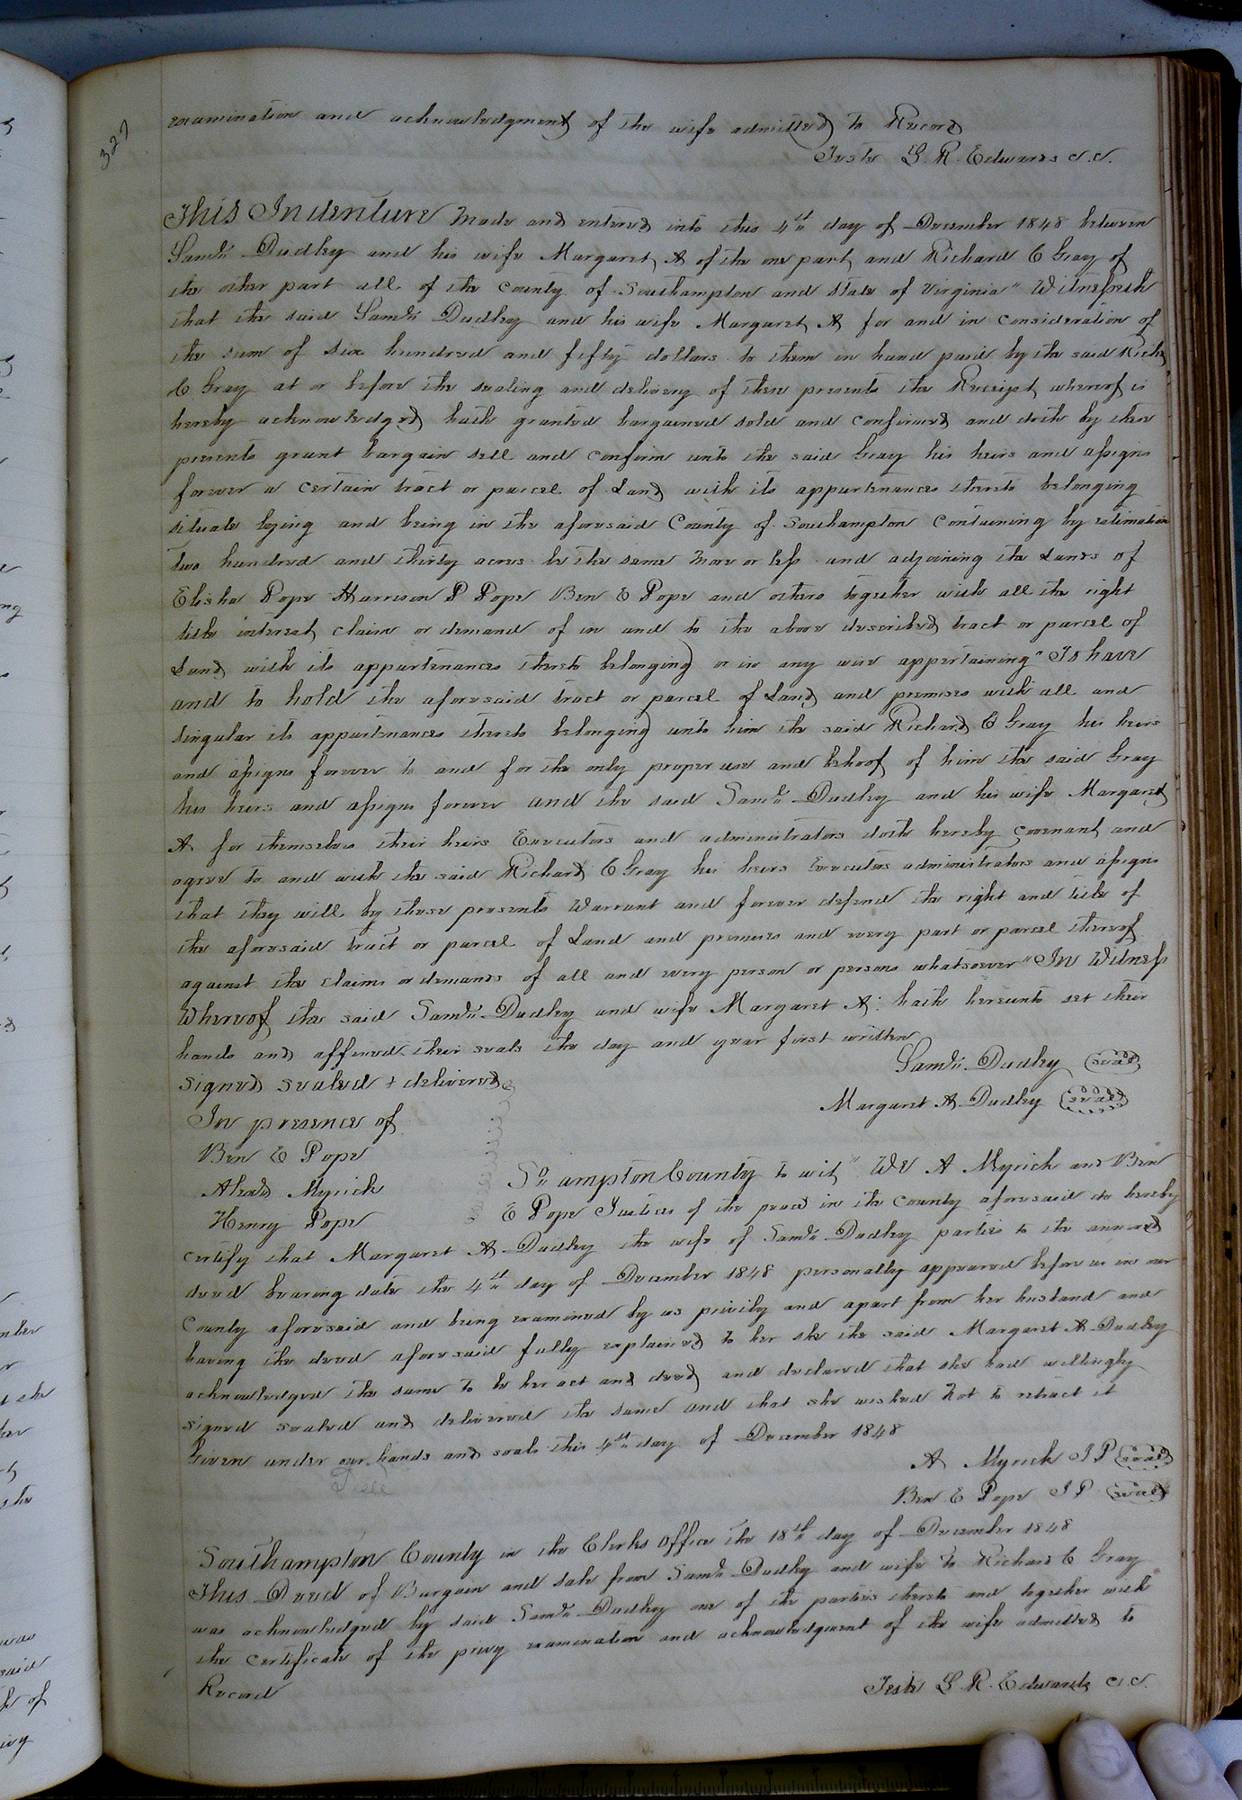 327
examination and acknowledgment of the wife admitted to Record
Teste L. R. Edwards c.c.
This Indenture Made and entered into this 4th day of December 1848 between
Saml Dudley and his wife Margaret A of the one part and Richard C Gray of
the other part all of the County of Southampton and State of Virginia" Witnesseth
that the said Saml Dudley and his wife Margaret A for and in consideration of
the sum of six hundred and fifty dollars to them in hand paid by the said Richd
C Gray at or before the sealing and delivery of these presents the Receipt whereof is
hereby acknowledged hath granted bargained sold and confirmed and doth by these
presents grant bargain sell and confirm unto the said Gray his heirs and assigns
forever a certain tract or parcel of Land with its appurtenances thereto belonging
situate lying and being in the aforesaid County of Southampton Containing by estimation
two hundred and thirty acres be the same more or less and adjoining the Lands of
Elisha Pope Harrison P Pope Ben E Pope and others together with all the right
title interest claim or demand of in and to the above described tract or parcel of
Land with its appurtenances thereto belonging or in any wise appertaining" To have
and to hold the aforesaid tract or parcel of Land and premises with all and
singular its appurtenances thereto belonging unto him the said Richard C Gray his heirs
and assigns forever to and for the only proper use and behoof of him the said Gray
his heirs and assigns forever And the said Saml Dudley and his wife Margaret
A for themselves their heirs Executors and administrators doth hereby covenant and
agree to and with the said Richard C Gray his heirs Executors administrators and assigns
that they will by these presents Warrant and forever defend the right and title of
the aforesaid tract or parcel of Land and premises and every part or parcel thereof
against the claims or demands of all and every person or persons whatsoever" In Witness
Whereof the said Saml Dudley and wife Margaret A: hath hereunto set their
hands and affixed their seals the day and year first written
Saml Dudley (seal)
signed sealed & delivered
Margaret A Dudley (seal)
In presence of
Ben E Pope
Alexd Myrick
Henry Pope
So ampton County to wit" We A Myrick and Ben
E Pope Justices of the peace in the County aforesaid do hereby
certify that Margaret A Dudley the wife of Saml Dudley parties to the annexed
deed bearing date the 4th day of December 1848 personally appeared before us in our
County aforesaid and being examined by us privily and apart from her husband and
having the deed aforesaid fully explained to her she the said Margaret A Dudley
acknowledged the same to be her act and deed and declared that she had willingly
signed sealed and delivered the same and that she wished not to retract it
Given under our hands and seals this 4th day of December 1848
A Myrick J P (seal)
Ben E Pope J P (seal)
Southampton County in the Clerks Office the 18th day of December 1848
This Deed of Bargain and sale from Saml Dudley and wife to Richard C Gray
was acknowledged by said Saml Dudley one of the parties thereto and together with
the certificate of the privy examination and acknowledgment of the wife admitted to
Record
Teste L. R. Edwards c.c.